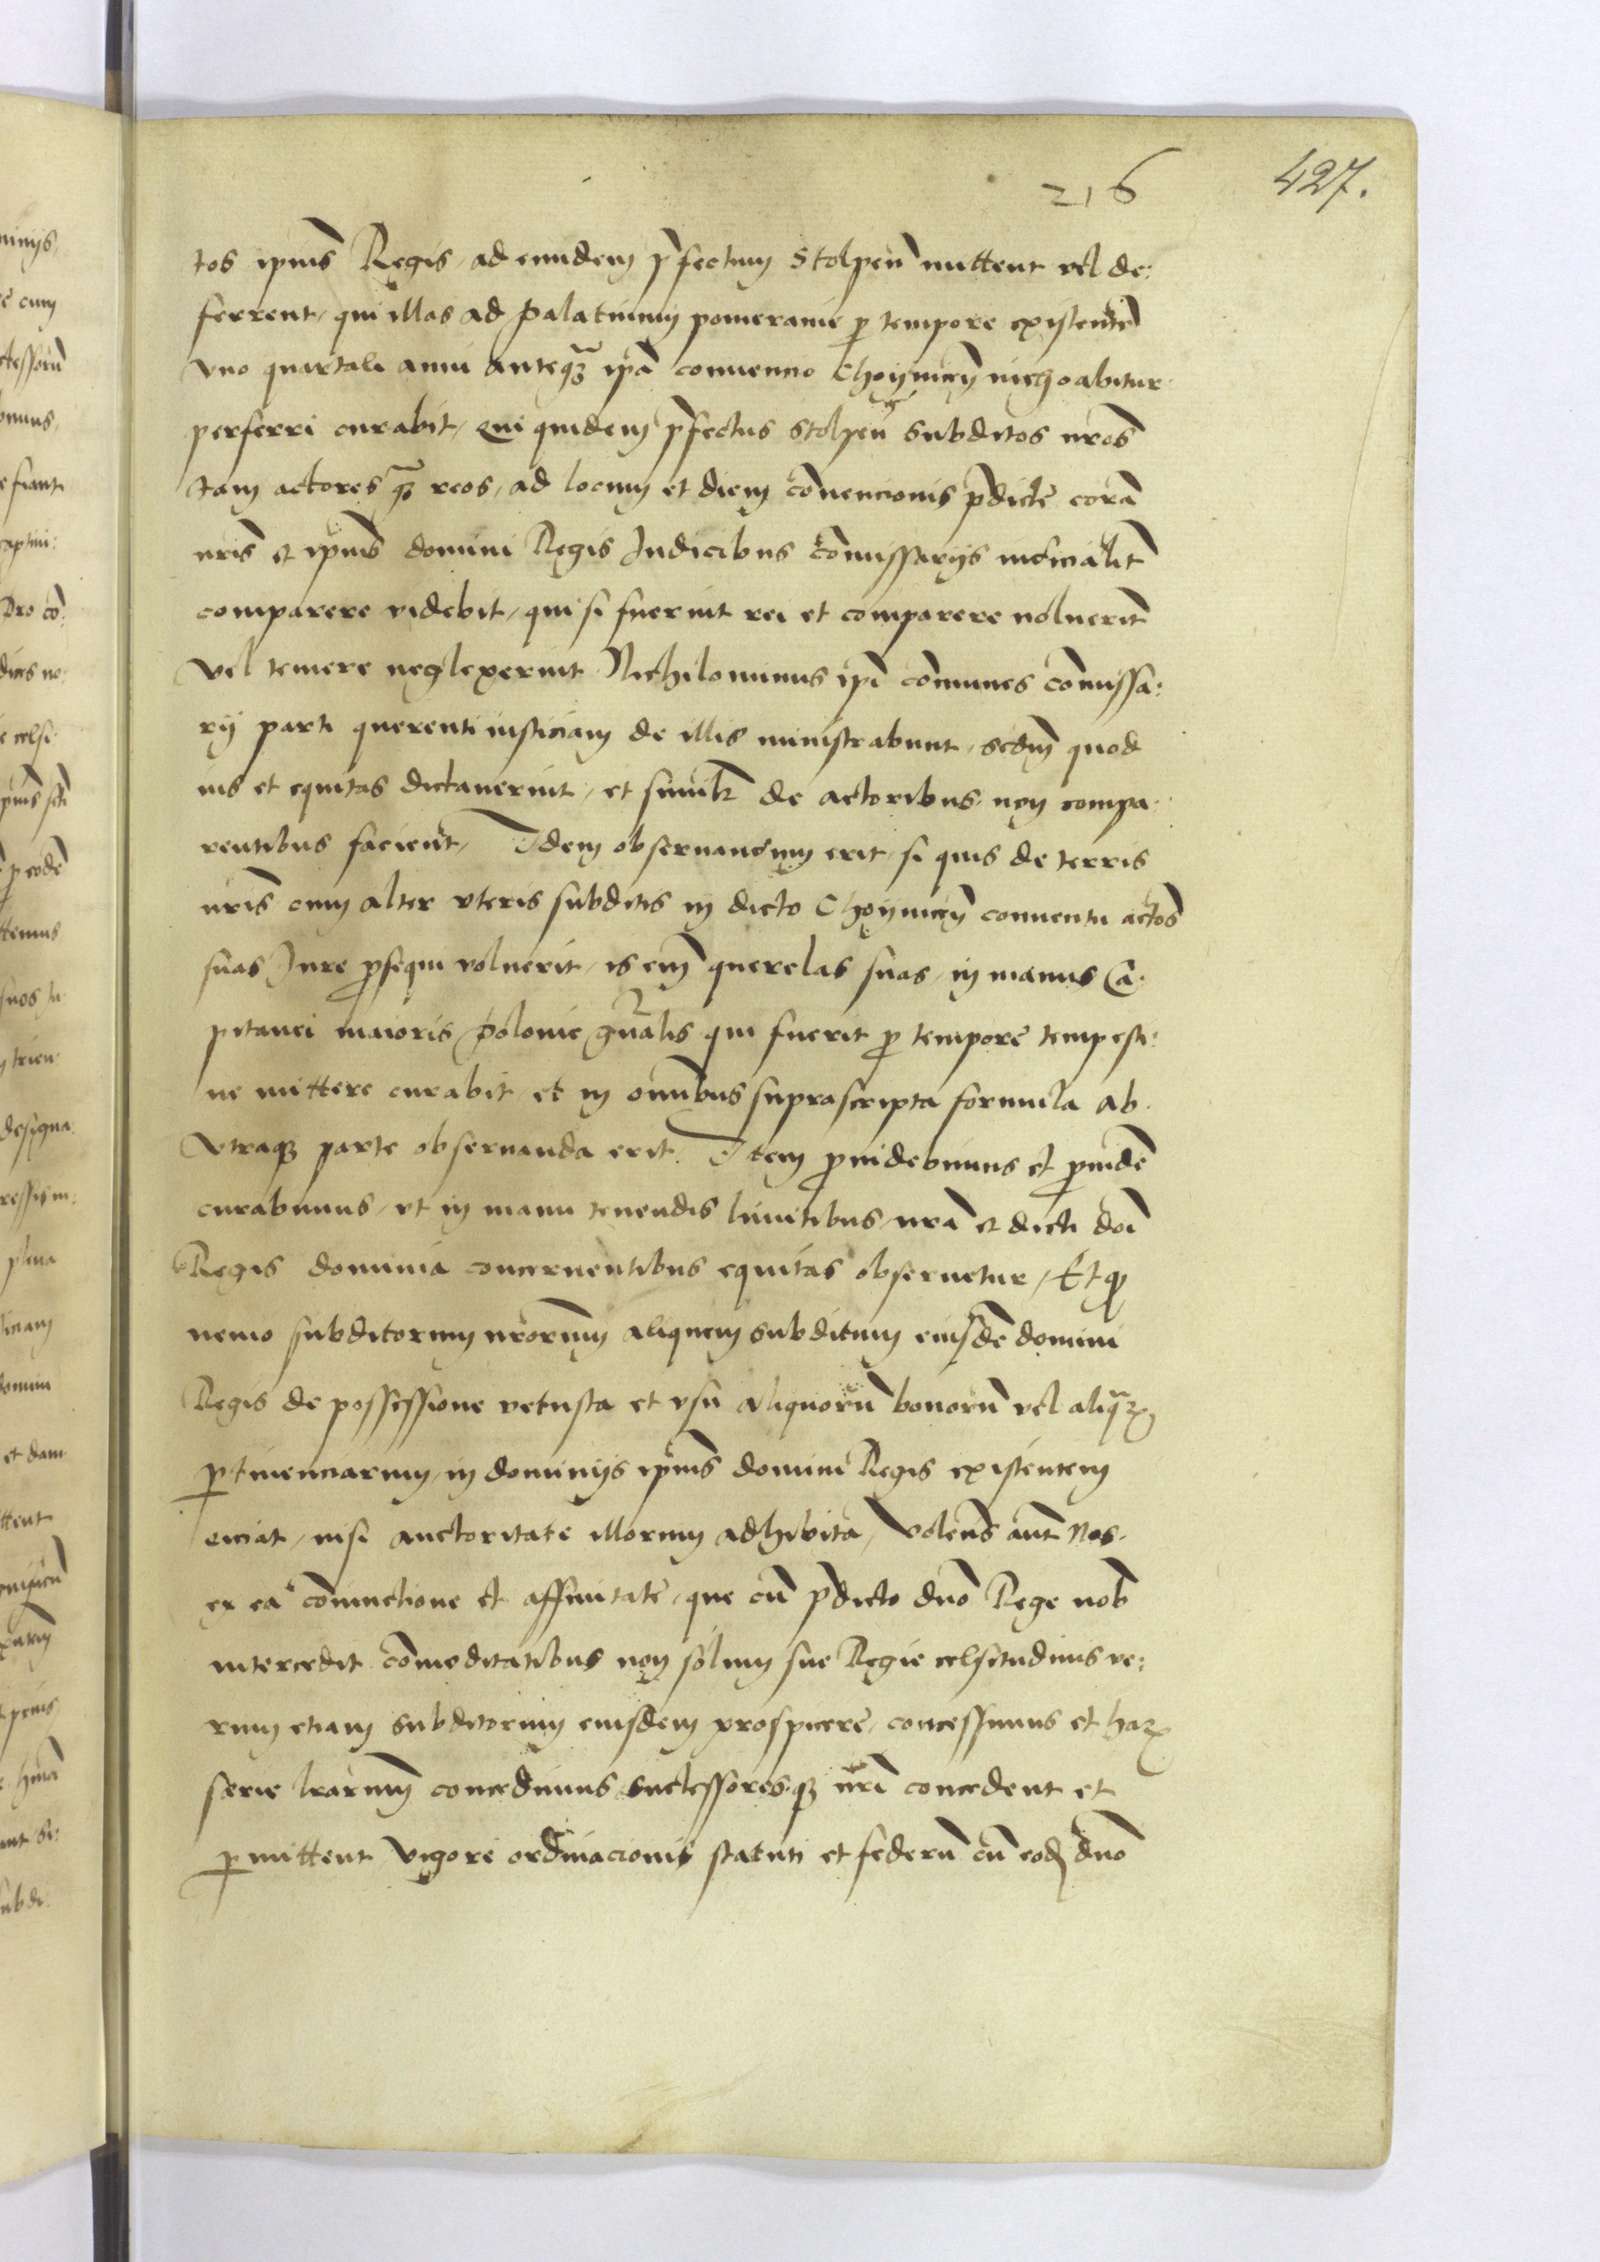 216 427.
tos ipius Regis, ad eundem p̄fectum Stolpeñ mittent vel de:
ferrent, qui illas ad palatinum pomeranie p tempore existentē
vno quartali anni anteq̄ȝ ipa conuencio Choÿniceñ inchoabitur
perferri curabit, Qui quidem p̄fectus Stolpeñ subditos nros
tam actores q̄ȝ reos, ad locum et diem cōuencionis p̄dicte corā
nris et ipius domini Regis Judicibus cōmissarijs iudicialit̄
comparere videbit, qui si fuerint rei et comparere noluerit̄
vel temere neglexerint Nichilominus ipi cōmunes cōmissa:
rij parti querenti iusticiam de illis ministrabunt, scdm quod
ius et equitas dictauerint, et similr de actoribus non compa:
rentibus facient, Idem obseruandum erit, si quis de terris
nris cum alter vteris subditis in dicto Choÿniceñ conuentu actōs
suas Jure ꝓsequi voluerit, is em̄ querelas suas, in manus Ca:
pitanei maioris Polonie gn̄alis qui fuerit ꝓ tempore tempesti:
ue mittere curabit, et in om̄ibus suprascripta formula ab
vtraqȝ parte obseruanda erit. Item ꝓuidebimus et ꝓuidē
curabimus, vt in manu tenendis limitibus, nrā et dicti doī
Regis dominia concernentibus equitas obseruetur, Et qꝫ
nemo subditorum nrorum aliquem subditum eiusdē domini
Regis de possessione vetusta et vsu aliquorū bonorū vel aliq̄rꝫ
ꝑtinenciarum, in dominijs ipius domini Regis existentem
eiciat, nisi auctoritate illorum adhibita, Volens aut̄ Nos
ex ea coniunctione et affinitate, que cū p̄dicto dn̄o Rege nob
intercedit cōmoditatibus non solum sue Regie celsitudinis ve:
rum etiam subditorum eiusdem prospicere, concessimus et harꝫ
serie lrarum concedimus successoresqȝ nri concedent et
ꝑmittent vigore ordinacionis statuti et federū cū eodꝫ dn̄o